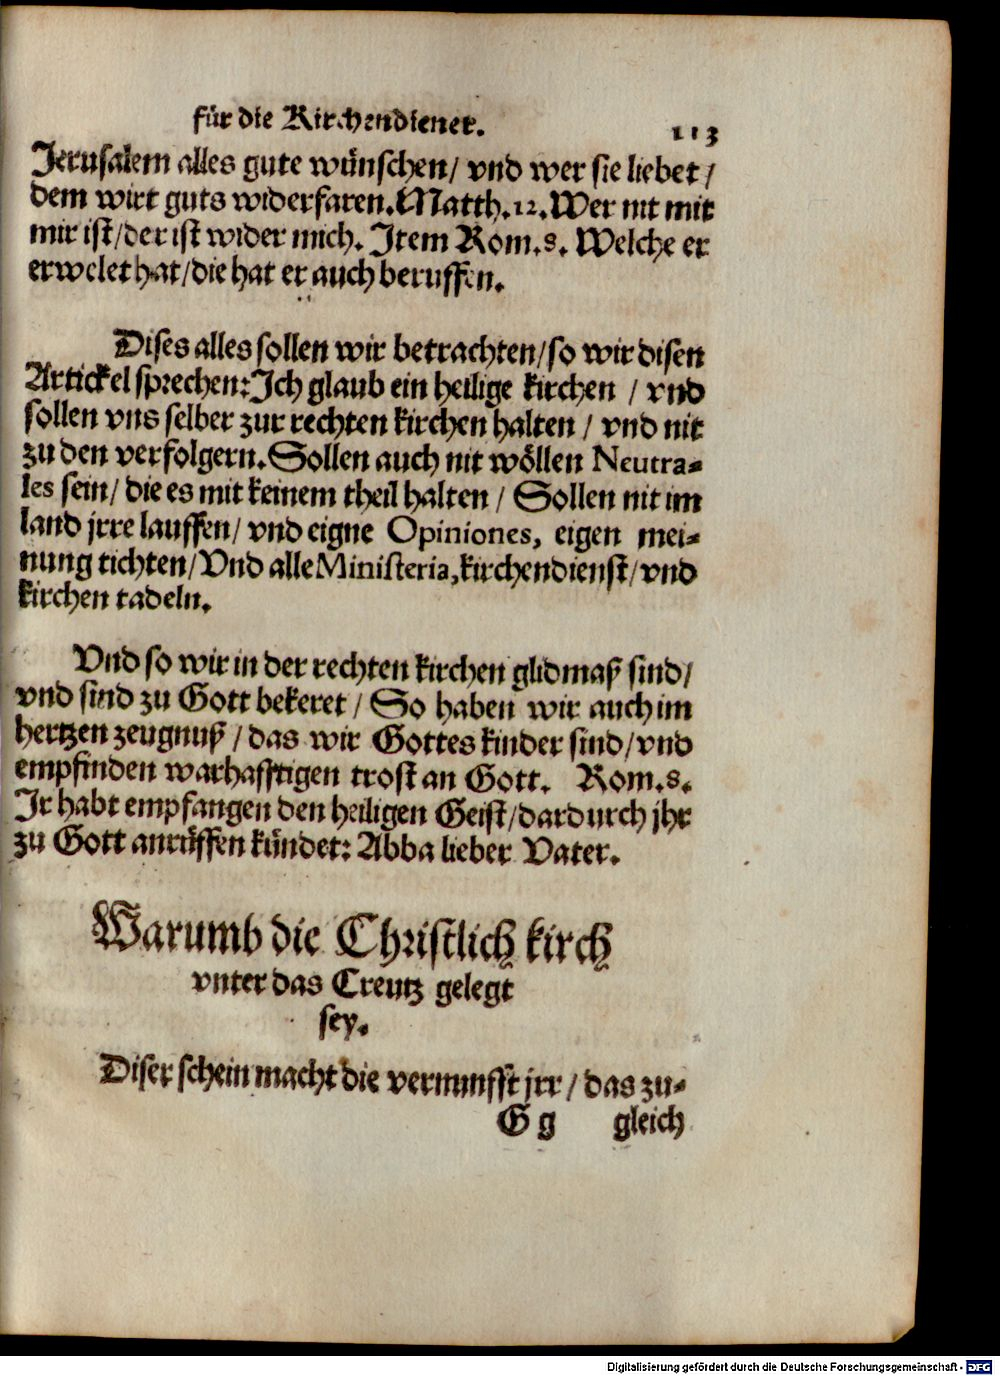 für die Kirchendiener. 113
Jerusalem alles gute wünschen/ vnd wer sie liebet/
dem wirt guts widerfaren. Matth. 12. Wer nit mit
mir ist/ der ist wider mich. Item Rom. 8. Welche er
erwelet hat/ die hat er auch beruffen.
Dises alles sollen wir betrachten/ so wir disen
Artickel sprechen: Ich glaub ein heilige kirchen / vnd
sollen vns selber zur rechten kirchen halten / vnd nit
zu den verfolgern. Sollen auch nit wöllen Neutra-
les sein/ die es mit keinem theil halten / Sollen nit im
land jrre lauffen/ vnd eigne Opiniones, eigen mei-
nung tichten/ Vnd alle Ministeria, kirchendienst/ vnd
kirchen tadeln.
Vnd so wir in der rechten kirchen glidmaß sind/
vnd sind zu Gott bekeret / So haben wir auch im
hertzen zeugnuß / das wir Gottes kinder sind/ vnd
empfinden warhafftigen trost an Gott. Rom. 8.
Ir habt empfangen den heiligen Geist/ dardurch jhr
zu Gott anrüffen kündet: Abba lieber Vater.
Warumb die Christlich kirch
vnter das Creutz gelegt
sey.
Diser schein macht die vernunfft jrr / das zu-
G g gleich
Digitalisierung gefördert durch die Deutsche Forschungsgemeinschaft - DFG